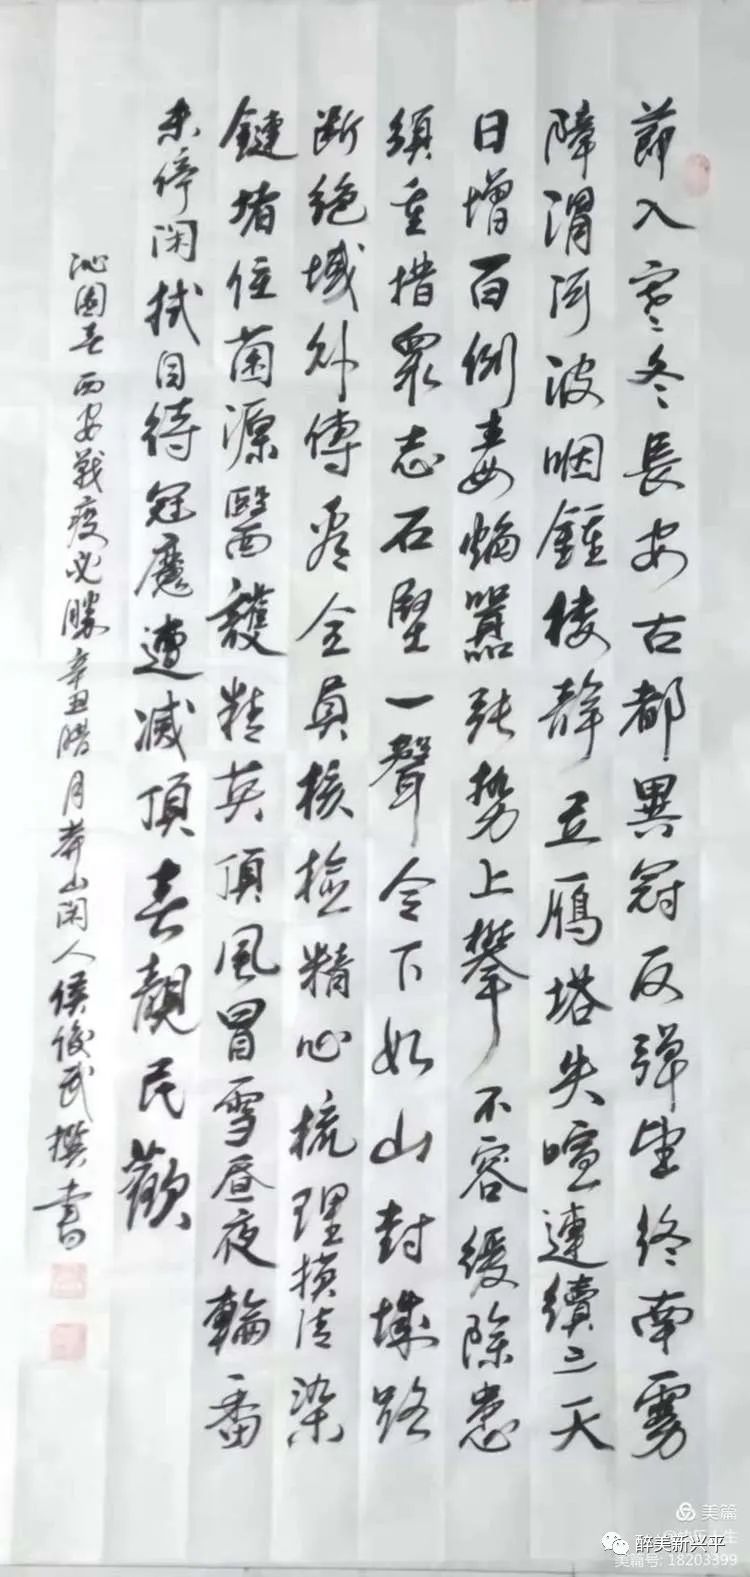 節入寒冬長安古都異冠反彈望終南雾
障渭河波咽鍾楼静立雁塔失喧連續三天
日增百例毒焰囂張势上攀不容缓除患
須重措眾志石堅一聲令下如山封城路
断绝域外傳看全員核檢精心梳理摸清染
鏈堵住菌源醫護精英頂風冒雪昼夜輪番
未停闲拭目待冠魔遭滅頂春靚民歡
沁園春西安戰疫必勝辛丑腊月莽山闲人侯俊武撰書
美篇
醉美新兴平
美篇号: 18203399